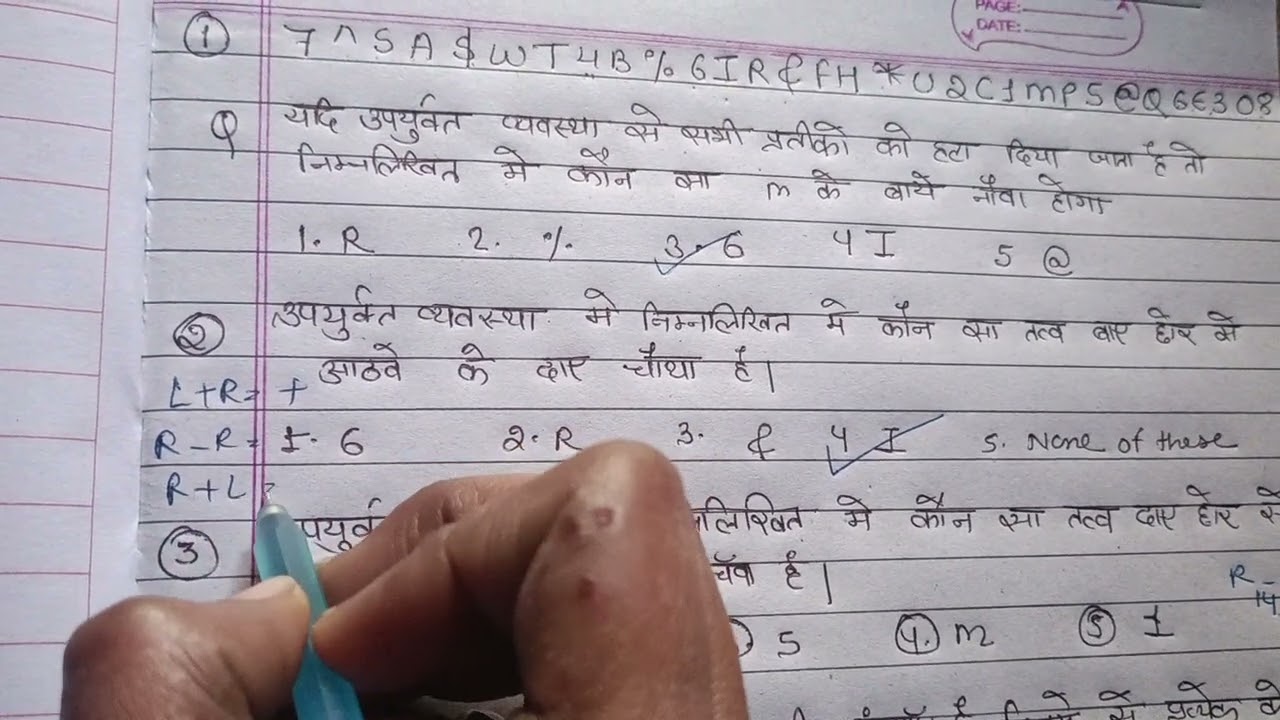 PAGE:
DATE:
① 7 ^ S A $ W T 4 B % 6 I R & F H * U 2 C 1 M P 5 @ Q 6 E 3 O 8
Q यदि उपर्युक्त व्यवस्था से सभी प्रतीको को हटा दिया जाता है तो
निम्नलिखित मे कौन सा m के बाये नौवा होगा
1. R 2. % 3. 6 4 I 5 @
② उपर्युक्त व्यवस्था मे निम्नलिखित मे कौन सा तत्व बाए छोर से
आठवे के दाए चौथा है।
L+R= +
R-R= 1. 6 2. R 3. & 4 I 5. None of these
R+L
③ मे कौन सा तत्व दाए छोर से
है। R -
14
5 4. m ⑤ 1